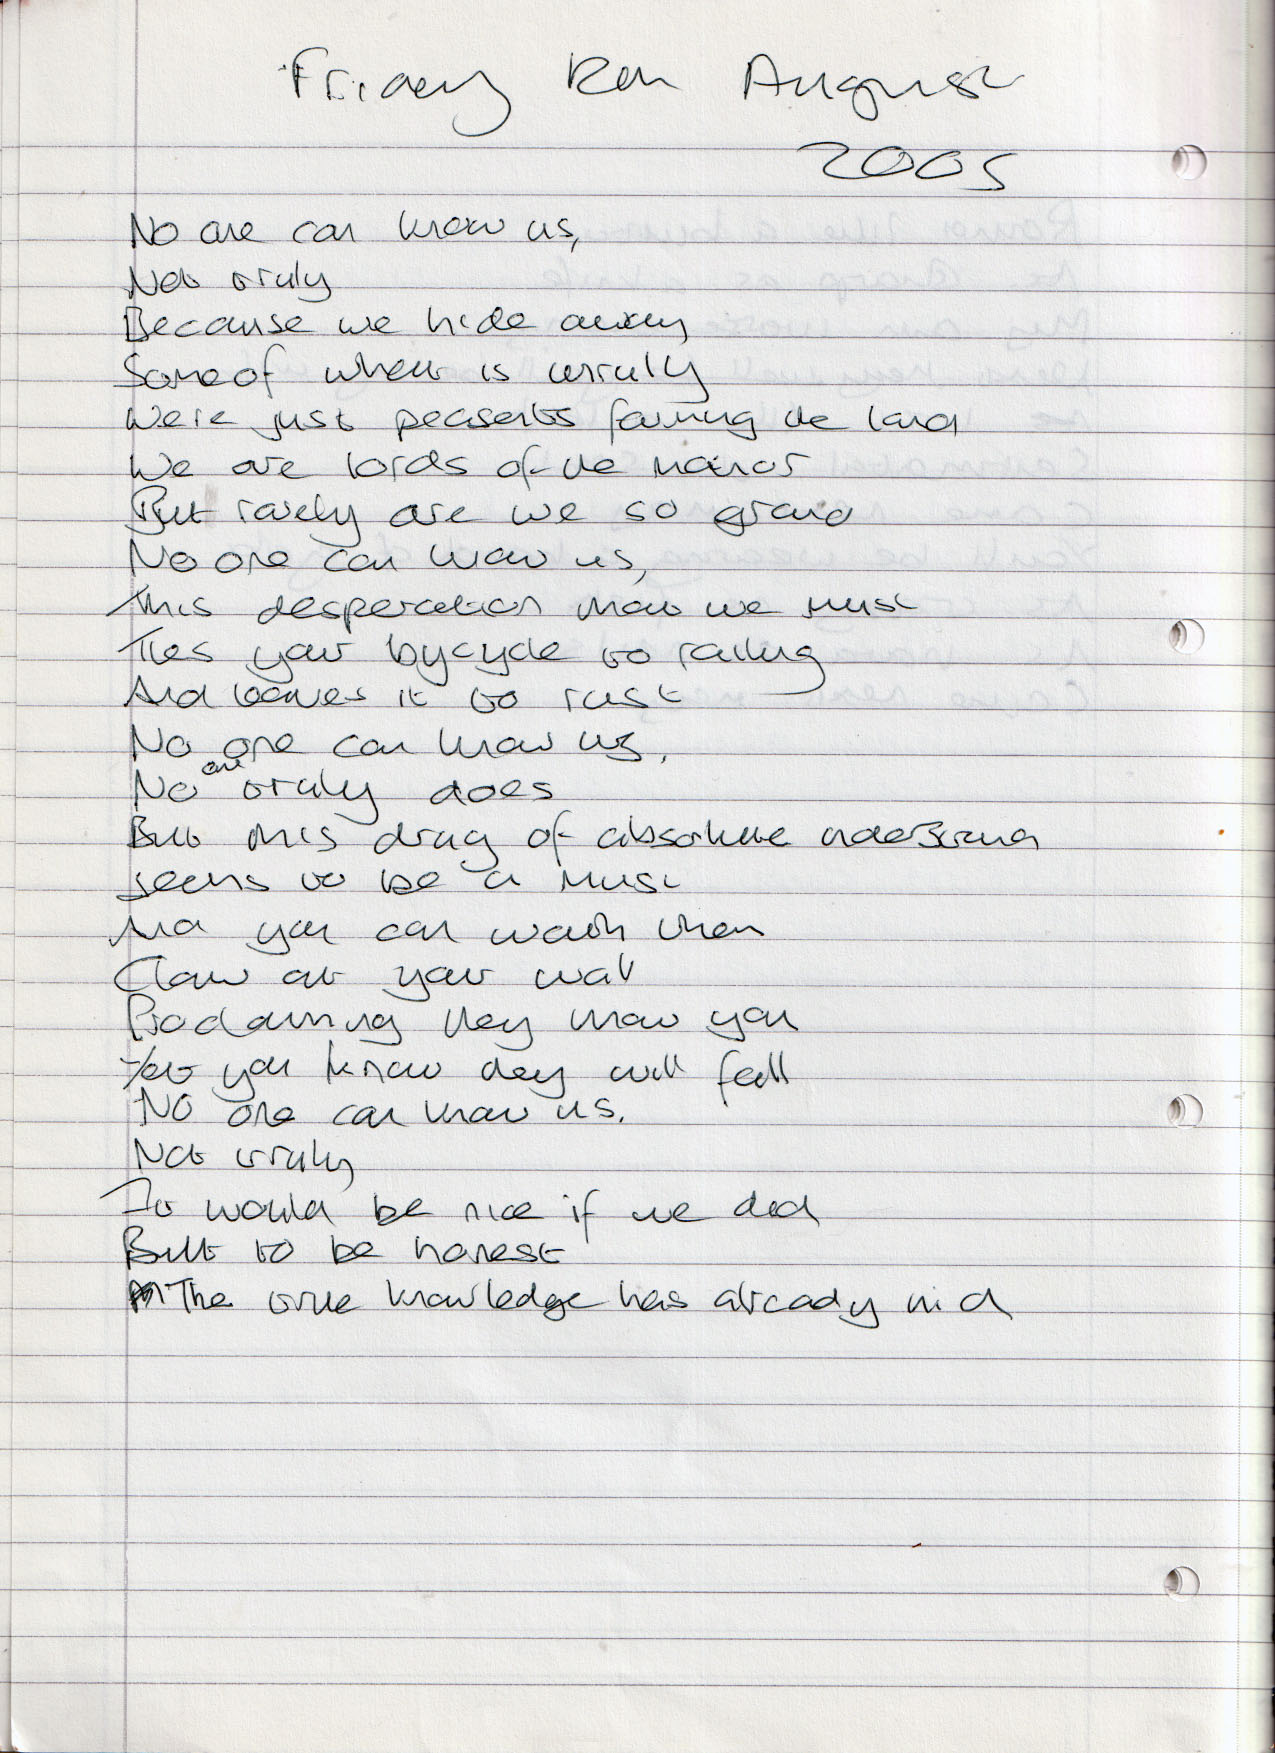 Friday 12th August
2005
No one can know us,
Not truly
Because we hide away
Some of what is unruly
We're just peasants farming the land
We are lords of the manor
But rarely are we so grand
No one can know us,
This desperation that we must
Ties your bycycle to railing
And leaves it to rust
No one can know us,
No one truly does
But this drug of absolute
seems to be a must
And you can watch them
Claw at your wall
Proclaiming they know you
Yet you know they will fall
No one can know us.
Not truly
It would be nice if we did
But to be honest
The true knowledge has already hid